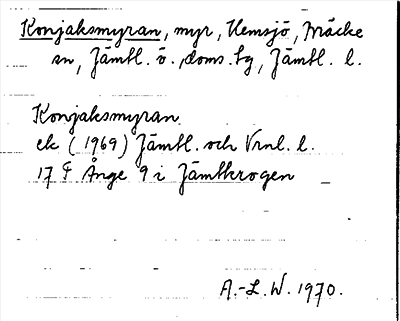 Konjaksmyran, myr, Hemsjö, Bräcke
sn, Jämtl. ö. doms. tg, Jämtl. l.
Konjaksmyran
ek (1969) Jämtl. och Vrnl. l.
17 F Ånge 9 i Jämtkrogen
A.-L. W. 1970.